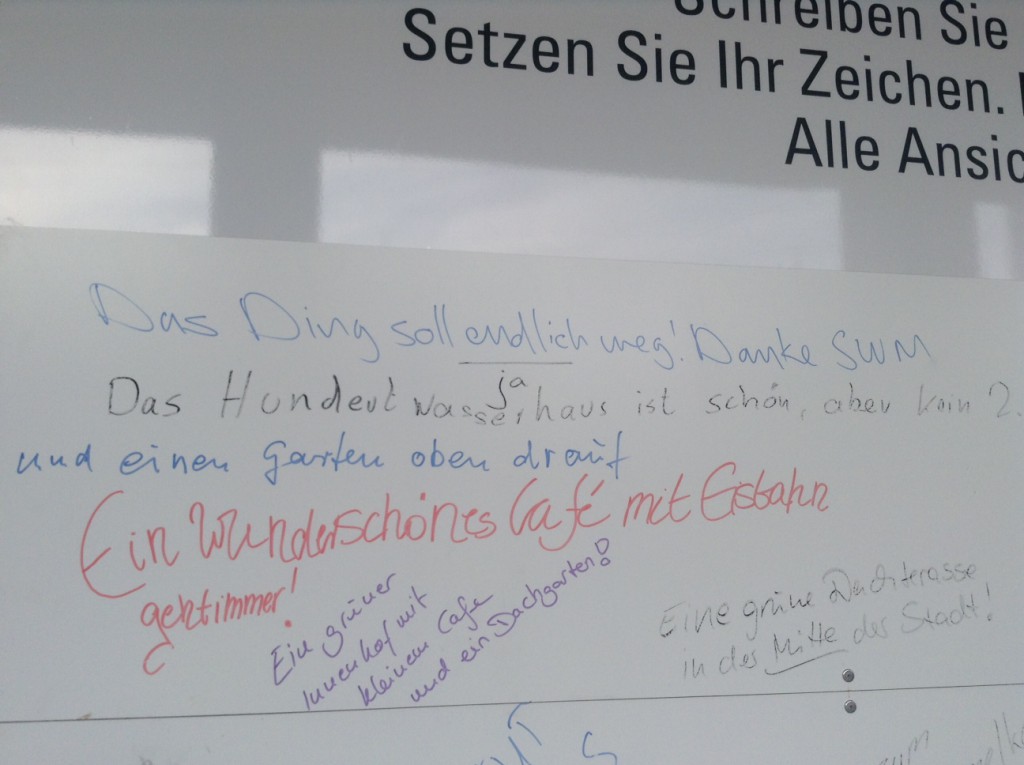 Schreiben Sie
Setzen Sie Ihr Zeichen.
Alle Ansic
Das Ding soll endlich weg! Danke SWM
ja
Das Hundertwasserhaus ist schön, aber kein 2.
und einen Garten oben drauf
Ein Wunderschönes Café mit Eisbahn
geht immer!
Ein grüner
Innenhof mit
kleinem Cafe
und ein Dachgarten!
Eine grüne Dachterasse
in der Mitte der Stadt!